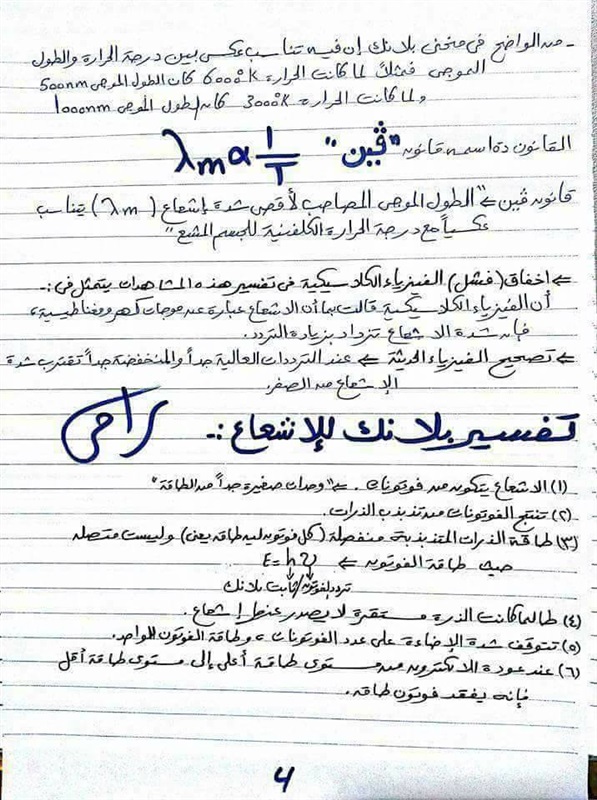 - من الواضح في منحنى بلانك إن فيه تناسب عكسى بين درجة الحرارة والطول
الموجى فمثلاً لما كانت الحرارة 6000°k كان الطول الموجى 500nm
ولما كانت الحرارة 3000°k كان الطول الموجى 1000nm
القانون ده اسمه قانون "ڤين" λm α 1/T
قانون ڤين ⇐ "الطول الموجى المصاحب لأقصى شدة إشعاع (λm) يتناسب
عكسياً مع درجة الحرارة الكلفنية للجسم المشع"
⇐ اخفاق (فشل) الفيزياء الكلاسيكية فى تفسير هذه المشاهدات يتمثل فى:-
أن الفيزياء الكلاسيكية قالت بما أن الاشعاع عبارة عن موجات كهرومغناطيسية،
فإن شدة الاشعاع تزداد بزيادة التردد.
⇐ تصحيح الفيزياء الحديثة ⇐ عند الترددات العالية جداً والمنخفضة جداً تقترب شدة
الإشعاع من الصفر.
تفسير بلانك للإشعاع:-
(١) الاشعاع يتكون من فوتونات. ⇐ "وحدات صغيرة جداً من الطاقة"
(٢) تنتج الفوتونات من تذبذب الذرات.
(٣) طاقة الذرات المتذبذبة منفصلة (كل فوتون ليه طاقة يعنى) وليست متصله
حيث طاقة الفوتون ⇐ E = hυ
تردد الفوتون / ثابت بلانك
(٤) طالما كانت الذرة مستقرة لا يصدر عنها إشعاع.
(٥) تتوقف شدة الإضاءة على عدد الفوتونات، وطاقة الفوتون الواحد.
(٦) عند عودة الالكترون من مستوى طاقة أعلى إلى مستوى طاقة أقل
فإنه يفقد فوتون طاقه.
4